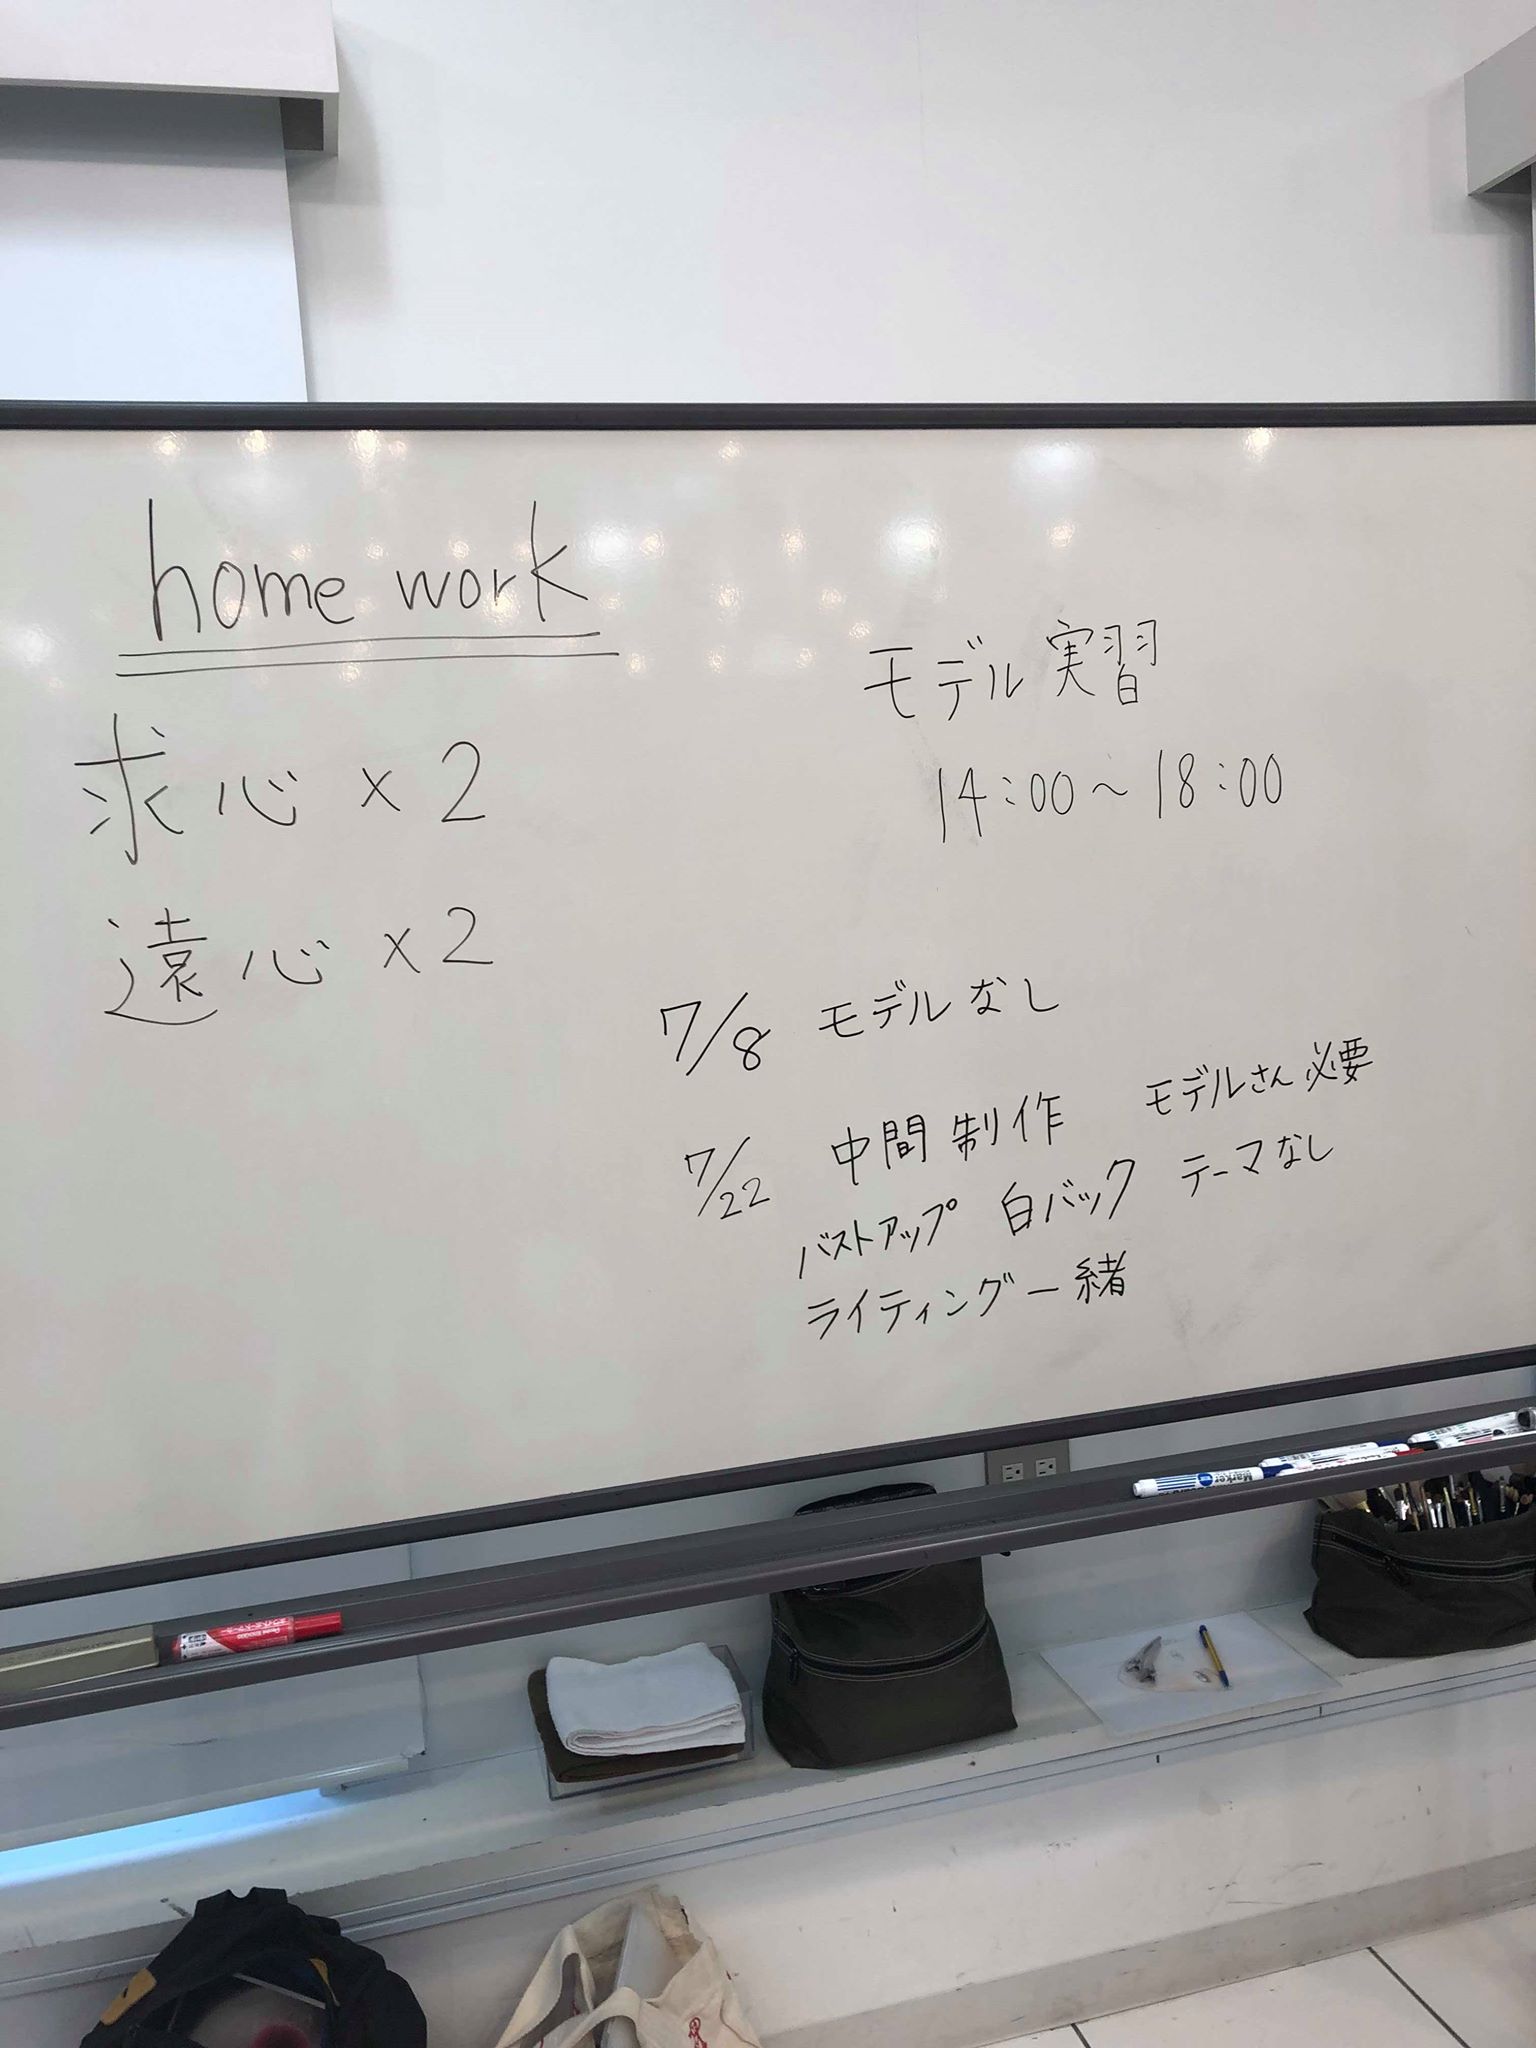 home work
求心 × 2
遠心 × 2
モデル 実習
14:00～18:00
7/8 モデルなし
7/22 中間制作 モデルさん必要
バストアップ 白バック テーマなし
ライティング一緒
Marker